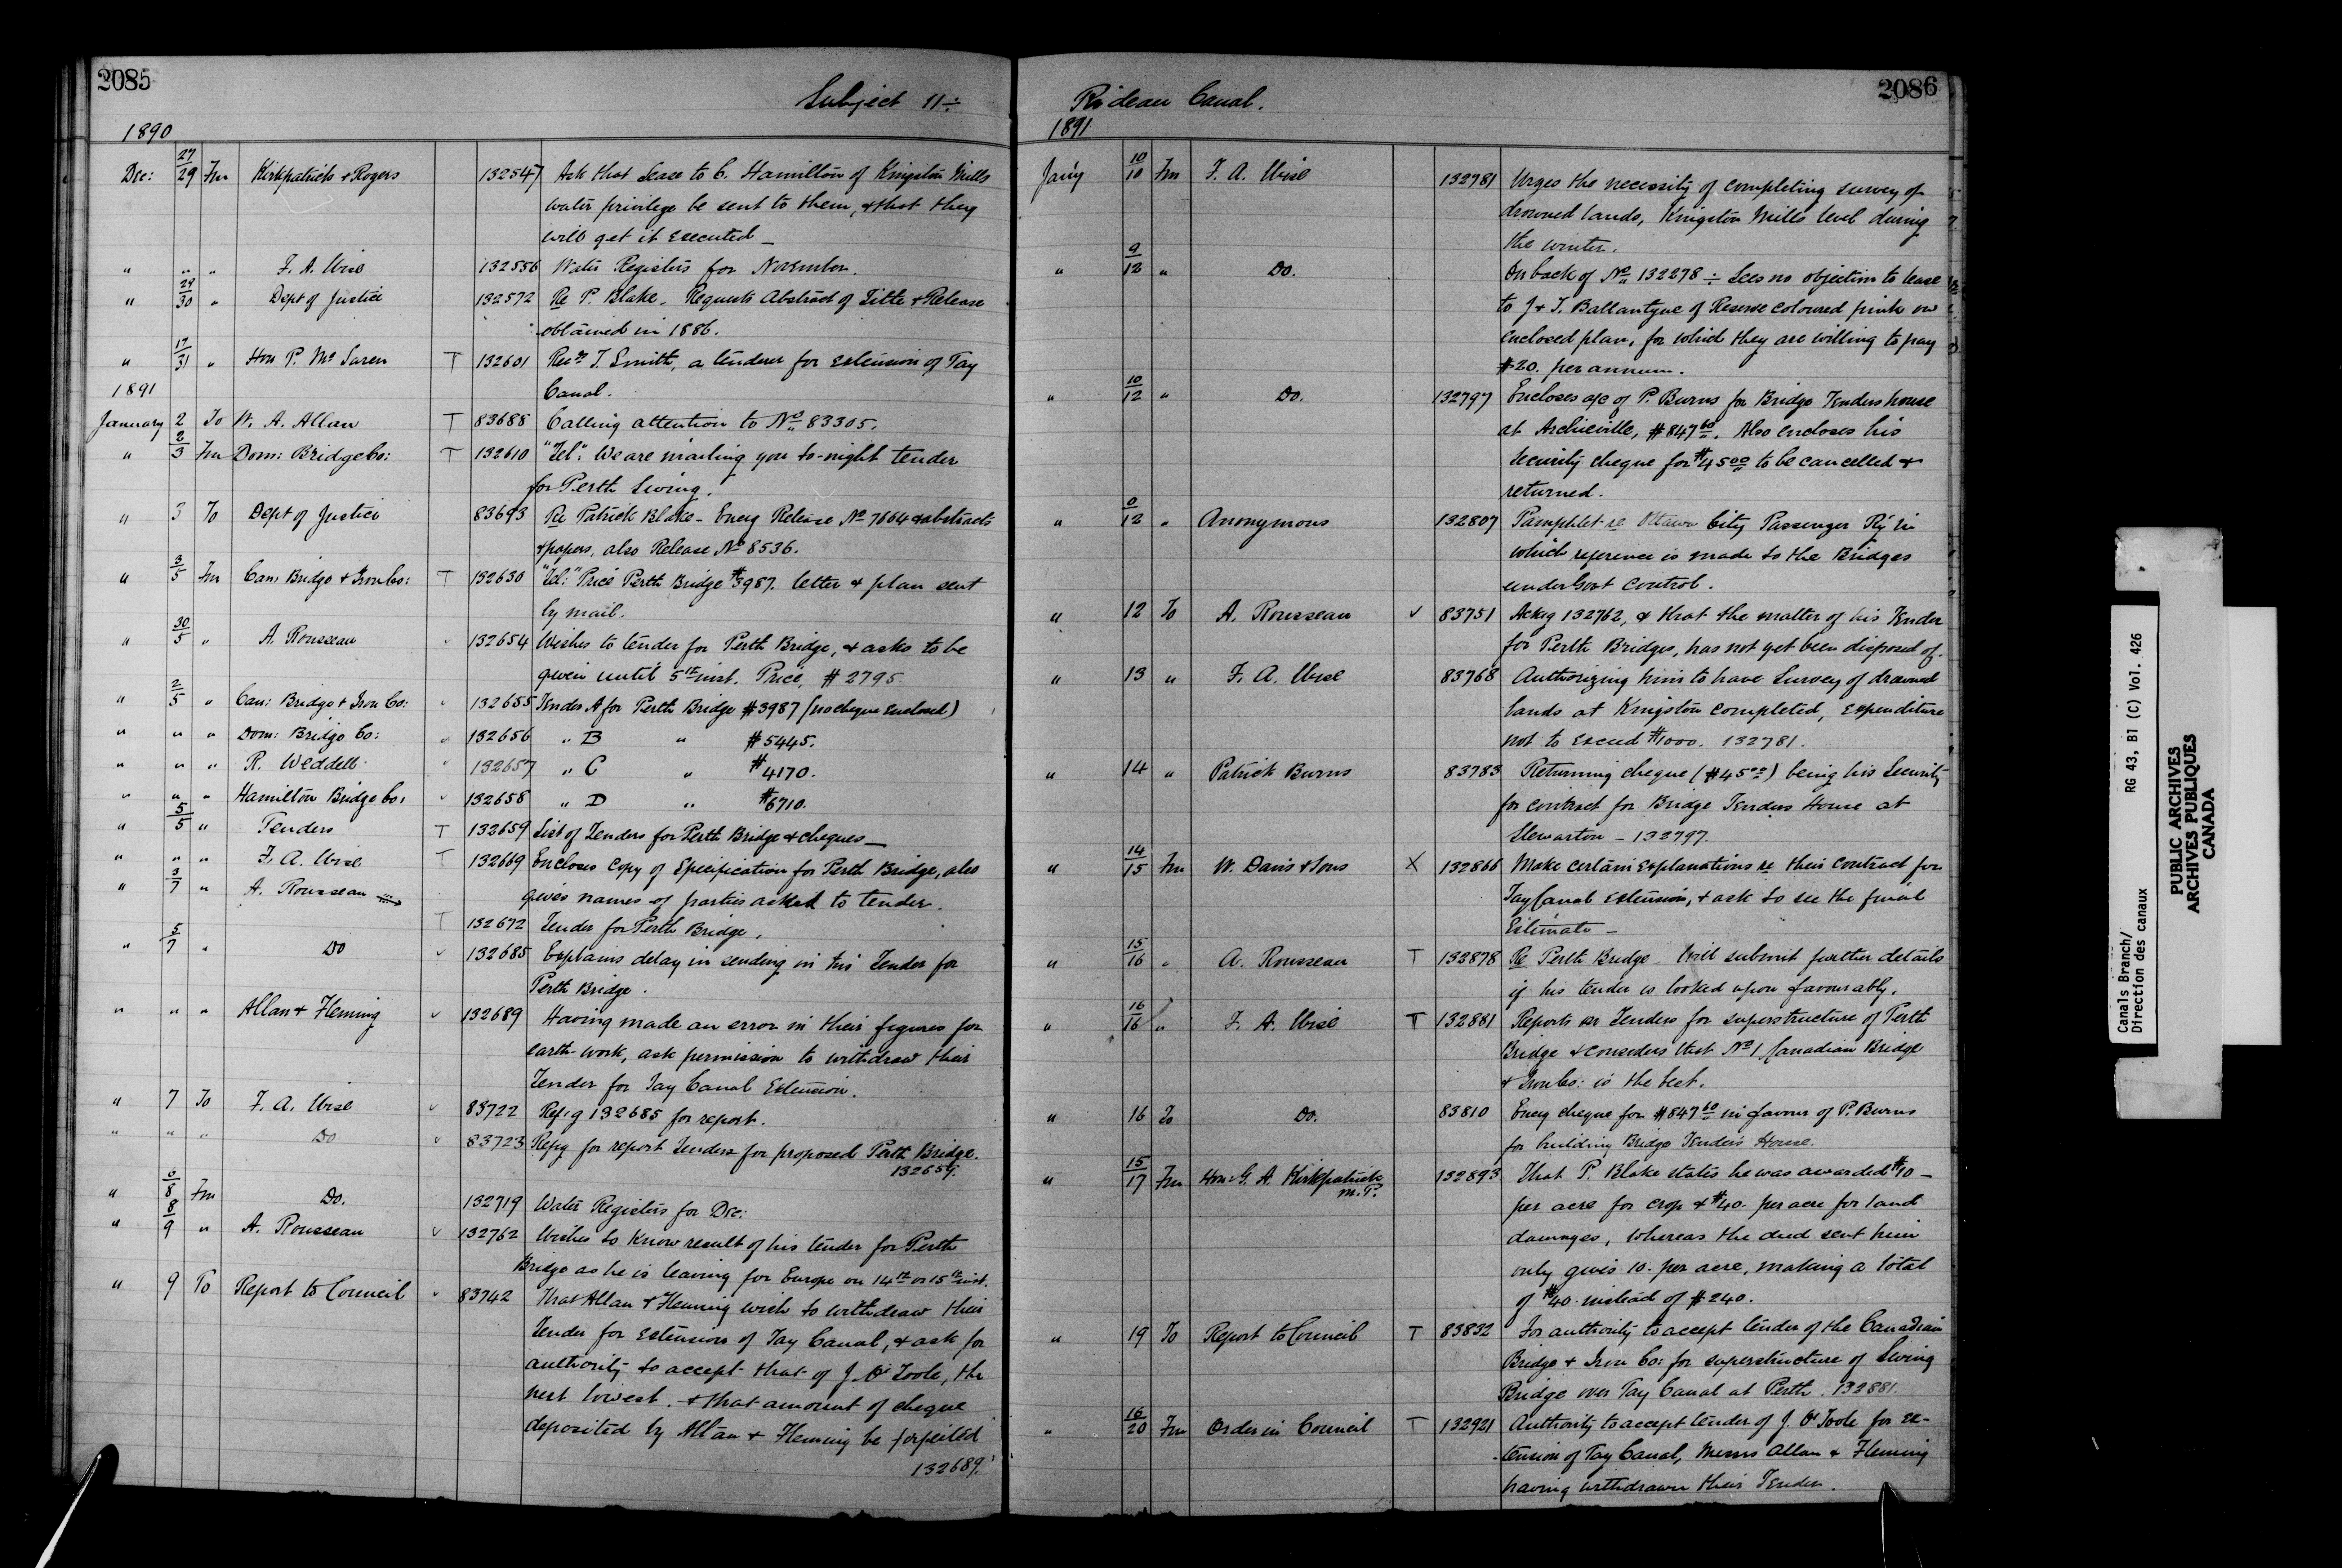 2085
Subject 11 ÷
1890
Dec: 27/29 Fm Kirkpatrick & Rogers 132547 Ask that Lease to C. Hamilton of Kingston Mills
water privilege be sent to them, & that they
will get it executed —
" " " F. A. Wise 132556 Water Registers for November.
" 29/30 " Dept of Justice 132572 Re P. Blake. Requests Abstract of Title & Release
obtained in 1886.
" 17/31 " Hon P. McLaren T 132601 Recds T. Smith, a tenderer for extension of Tay
Canal.
1891
January 2 To W. A. Allan T 83688 Calling attention to No 83305.
" 2/3 Fm Dom: Bridge Co: T 132610 "Tel": We are mailing you to-night tender
for Perth Swing.
" 3 To Dept of Justice 83693 Re Patrick Blake — Encg Release No 7664 & abstracts
& papers, also Release No 8536.
" 3/5 Fm Can: Bridge & Iron Co: T 132630 "Tel:" Price Perth Bridge $3987. letter & plan sent
by mail.
" 30/5 " A. Rousseau ✓ 132654 Wishes to tender for Perth Bridge, & asks to be
given until 5th inst. Price, $2795.
" 2/5 " Can: Bridge & Iron Co: ✓ 132655 Tender A for Perth Bridge $3987 (no cheque Enclosed)
" " " Dom: Bridge Co: ✓ 132656 " B " $5445.
" " " R. Weddell ✓ 132657 " C " $4170.
" " " Hamilton Bridge Co: ✓ 132658 " D " $6710.
" 5/5 " Tenders T 132659 List of Tenders for Perth Bridge & cheques —
" " " F. A. Wise T 132669 Encloses Copy of Specification for Perth Bridge, also
gives names of parties asked to tender.
" 3/7 " A. Rousseau T 132672 Tender for Perth Bridge.
" 5/7 " Do ✓ 132685 Explains delay in sending in his Tender for
Perth Bridge.
" " " Allan & Fleming ✓ 132689 Having made an error in their figures for
earth-work, ask permission to withdraw their
Tender for Tay Canal Extension.
" 7 To F. A. Wise ✓ 83722 Refg 132685 for report.
" " " Do ✓ 83723 Refg for report Tenders for proposed Perth Bridge.
132659.
" 6/8 Fm Do. 132719 Water Registers for Dec:
" 8/9 " A. Rousseau ✓ 132762 Wishes to know result of his tender for Perth
Bridge as he is leaving for Europe on 14th or 15th inst.
" 9 To Report to Council ✓ 83742 That Allan & Fleming wish to withdraw their
Tender for extension of Tay Canal, & ask for
authority to accept that of J. O'Toole, the
next lowest. & that amount of cheque
deposited by Allan & Fleming be forfeited
132689.
2086
Rideau Canal.
1891
Jany 10/10 Fm F. A. Wise 132781 Urges the necessity of completing survey of
drowned lands, Kingston Mills level during
the winter.
" 9/12 " Do. On back of No 132278 ÷ Sees no objection to lease
to J & T. Ballantyne of Reserve coloured pink on
enclosed plan, for which they are willing to pay
$20. per annum.
" 10/12 " Do. 132797 Encloses a/c of P. Burns for Bridge Tenders house
at Archieville, $847 60. Also encloses his
security cheque for $45 00 to be cancelled &
returned.
" 0/12 " Anonymous 132807 Pamphlet re Ottawa City Passenger Ry in
which reference is made to the Bridges
under Govt Control.
" 12 To A. Rousseau ✓ 83751 Ackg 132762, & that the matter of his Tender
for Perth Bridges, has not yet been disposed of.
" 13 " F. A. Wise 83768 Authorizing him to have Survey of drowned
lands at Kingston completed, expenditure
not to exceed $1000. 132781.
" 14 " Patrick Burns 83783 Returning cheque ($45 00) being his Security
for contract for Bridge Tenders House at
Stewarton — 132797.
" 14/15 Fm W. Davis & Sons X 132866 Make certain Explanations re their Contract for
Tay Canal Extension, & ask to see the final
Estimate —
" 15/16 " A. Rousseau T 132878 Re Perth Bridge. Will submit further details
if his tender is looked upon favourably.
" 16/16 " F. A. Wise T 132881 Reports on Tenders for superstructure of Perth
Bridge & considers that No 1 Canadian Bridge
& Iron Co: is the best.
" 16 To Do. 83810 Encg cheque for $847 60 in favour of P. Burns
for building Bridge Tender's House.
" 15/17 Fm Hon: G. A. Kirkpatrick 132893 That P. Blake states he was awarded $10 —
M.P.
per acre for crop & $40. per acre for land
damages, whereas the deed sent him
only gives 10. per acre, making a total
of $40. instead of $240.
" 19 To Report to Council T 83832 For authority to accept tender of the Canadian
Bridge & Iron Co: for superstructure of Swing
Bridge over Tay Canal at Perth. 132881.
" 16/20 Fm Order in Council T 132921 Authority to accept tender of J. O'Toole for ex-
tension of Tay Canal, Messrs Allan & Fleming
having withdrawn their Tender.
Canals Branch/ RG 43, B1 (C) Vol. 426
Direction des canaux
PUBLIC ARCHIVES
ARCHIVES PUBLIQUES
CANADA